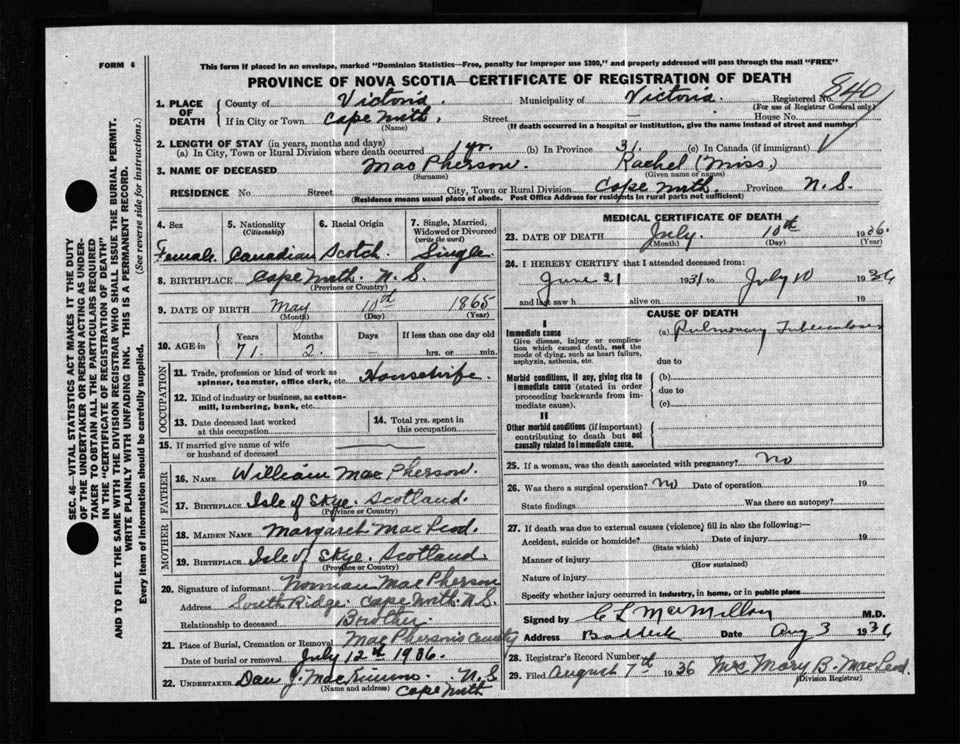 FORM 6
This form if placed in an envelope, marked "Dominion Statistics—Free, penalty for improper use $300," and properly addressed will pass through the mail "FREE"
PROVINCE OF NOVA SCOTIA—CERTIFICATE OF REGISTRATION OF DEATH
SEC. 46—VITAL STATISTICS ACT MAKES IT THE DUTY
OF THE UNDERTAKER OR PERSON ACTING AS UNDER-
TAKER TO OBTAIN ALL THE PARTICULARS REQUIRED
IN THE "CERTIFICATE OF REGISTRATION OF DEATH"
AND TO FILE THE SAME WITH THE DIVISION REGISTRAR WHO SHALL ISSUE THE BURIAL PERMIT.
WRITE PLAINLY WITH UNFADING INK. THIS IS A PERMANENT RECORD.
Every item of information should be carefully supplied. (See reverse side for instructions.)
1. PLACE OF DEATH County of Victoria. Municipality of Victoria. Registered No. 840
(For use of Registrar General only)
If in City or Town Cape North. Street — House No.
(Name) (If death occurred in a hospital or institution, give the name instead of street and number)
2. LENGTH OF STAY (in years, months and days)
(a) In City, Town or Rural Division where death occurred 1 yr. (b) In Province 31. (c) In Canada (if immigrant)
3. NAME OF DECEASED MacPherson. Rachel (Miss.)
(Surname) (Given name or names)
RESIDENCE No. Street City, Town or Rural Division Cape North. Province N.S.
(Residence means usual place of abode. Post Office Address for residents in rural parts not sufficient)
4. Sex 5. Nationality 6. Racial Origin 7. Single, Married,
(Citizenship) Widowed or Divorced
(write the word)
Female Canadian Scotch Single
8. BIRTHPLACE Cape North. N.S
(Province or Country)
9. DATE OF BIRTH May 10th 1865
(Month) (Day) (Year)
10. AGE in Years Months Days If less than one day old
71. 2. — hrs. or min.
OCCUPATION
11. Trade, profession or kind of work as
spinner, teamster, office clerk, etc. Housewife.
12. Kind of industry or business, as cotton-
mill, lumbering, bank, etc.
13. Date deceased last worked
at this occupation
14. Total yrs. spent in
this occupation
15. If married give name of wife
or husband of deceased
FATHER
16. NAME William MacPherson.
17. BIRTHPLACE Isle of Skye. Scotland.
(Province or Country)
MOTHER
18. MAIDEN NAME Margaret MacLeod.
19. BIRTHPLACE Isle of Skye. Scotland.
(Province or Country)
20. Signature of informant Norman MacPherson
Address South Ridge Cape North. N.S.
Relationship to deceased Brother.
21. Place of Burial, Cremation or Removal MacPherson's
Date of burial or removal July 12th 1936.
22. UNDERTAKER Dan J. MacKinnon. N.S
(Name and address) Cape North
MEDICAL CERTIFICATE OF DEATH
23. DATE OF DEATH July. 10th 1936.
(Month) (Day) (Year)
24. I HEREBY CERTIFY that I attended deceased from:
June 21 1931 to July 10 1936
and last saw h alive on 19
CAUSE OF DEATH
I
Immediate cause (a) Pulmonary Tuberculosis
Give disease, injury or complica-
tion which caused death, not the
mode of dying, such as heart failure,
asphyxia, asthenia, etc. due to
Morbid conditions, if any, giving rise to (b)
immediate cause (stated in order due to
proceeding backwards from im-
mediate cause). (c)
II
Other morbid conditions (if important)
contributing to death but not
causally related to immediate cause.
25. If a woman, was the death associated with pregnancy? No
26. Was there a surgical operation? No Date of operation 19
State findings Was there an autopsy?
27. If death was due to external causes (violence) fill in also the following:—
Accident, suicide or homicide? Date of injury 19
(State which)
Manner of injury
(How sustained)
Nature of injury
Specify whether injury occurred in industry, in home, or in public place
Signed by C L MacMillan M.D.
Address Baddeck Date Aug 3 1936
28. Registrar's Record Number
29. Filed August 7th 1936 Mrs Mary B. MacLeod.
(Division Registrar)